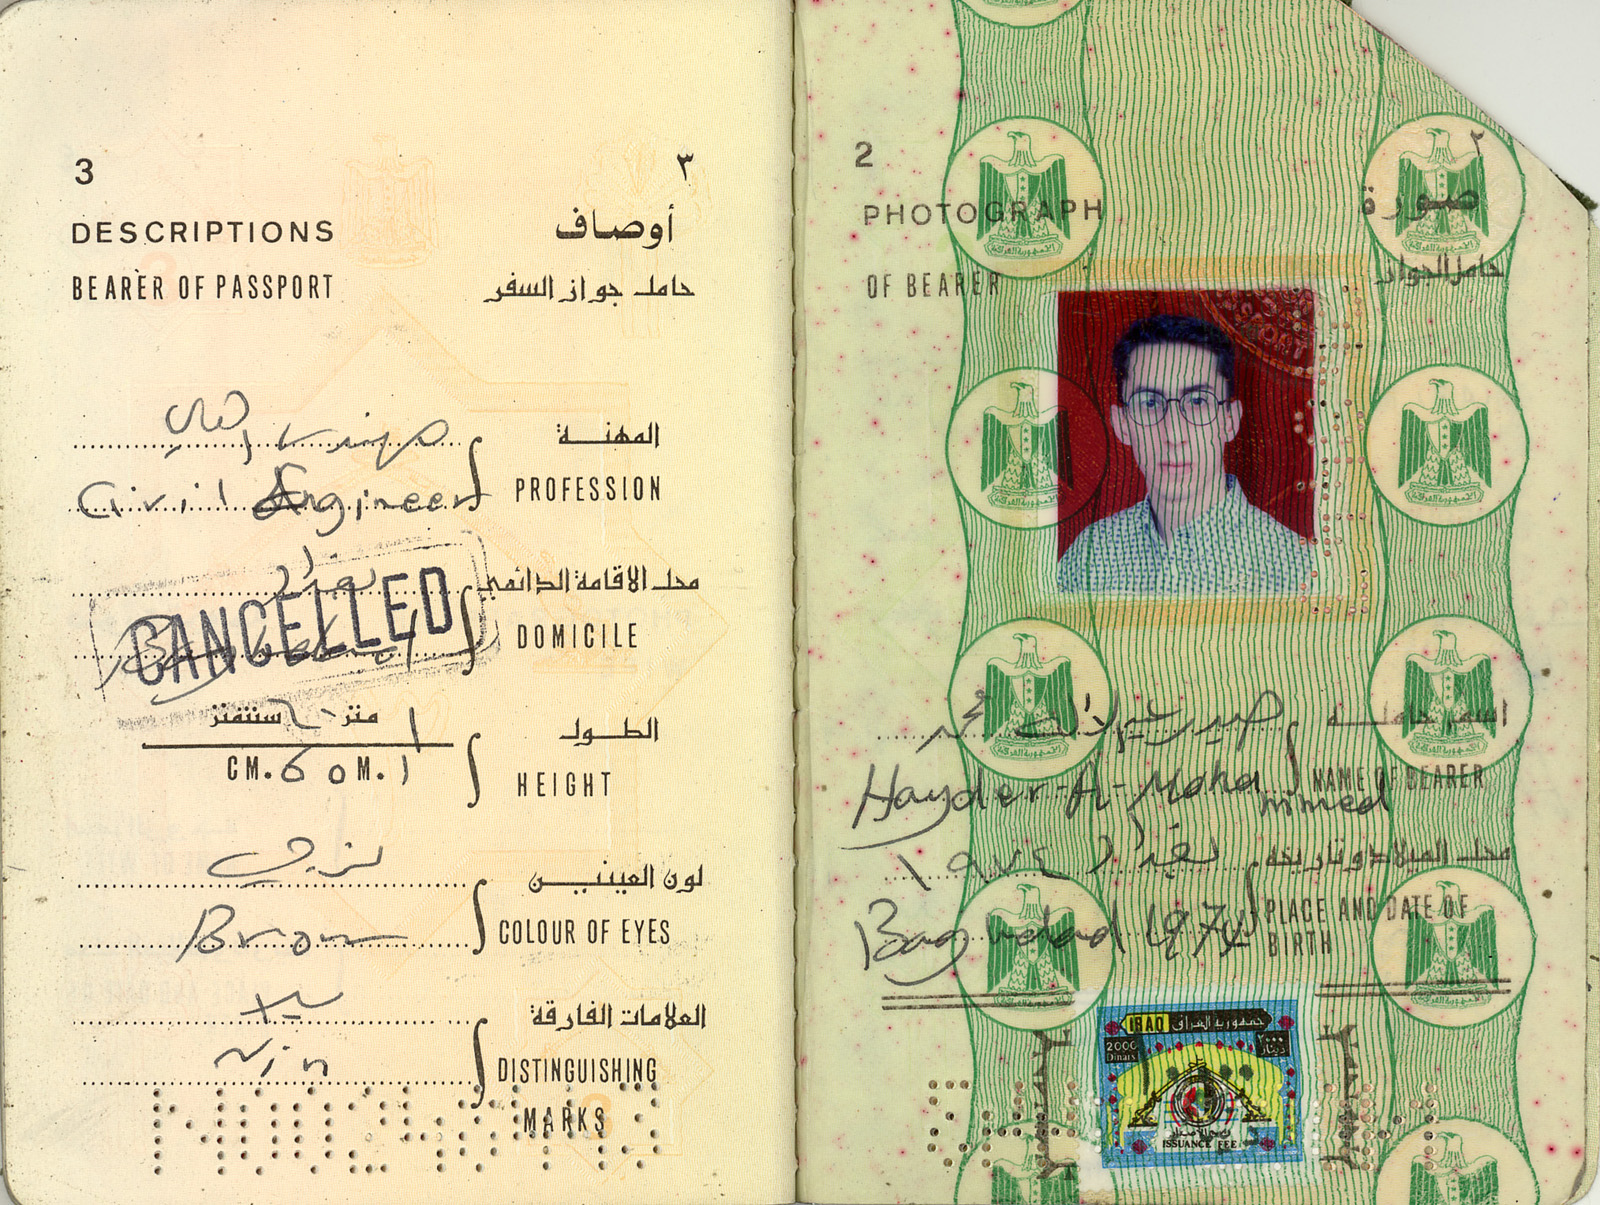 3
٣
DESCRIPTIONS
أوصاف
BEARER OF PASSPORT
حامل جواز السفر
المهنة
PROFESSION
Civil Engineer
محل الاقامة الدائمي
بغداد
DOMICILE
Baghdad
CANCELLED
الطول
متر
سنتمتر
HEIGHT
CM. 60 M. 1
لون العينين
COLOUR OF EYES
Bron
العلامات الفارقة
DISTINGUISHING
MARKS
2
٢
PHOTOGRAPH
صورة
OF BEARER
حامل الجواز
اسم حامله
حيدر محمد
NAME OF BEARER
Hayder-A-Moha
mmed
محل الميلاد وتاريخه
بغداد ١٩٧٤
PLACE AND DATE OF
BIRTH
Baghdad 1974
IRAQ
جمهورية العراق
2000
Dinars
٢٠٠٠
دينار
رسم الاصدار
ISSUANCE FEE